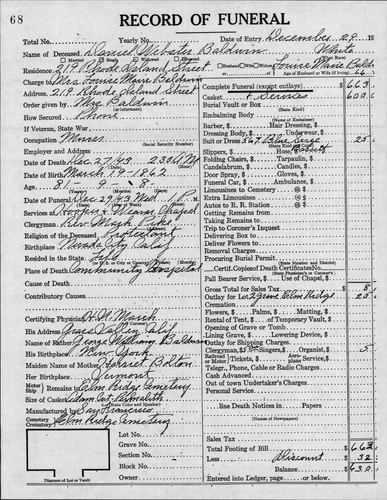 68
RECORD OF FUNERAL
Total No. Yearly No. Date of Entry December 29 19
Name of Deceased Daniel Webster Baldwin White
Married Single Widowed Divorced
Residence 219 Rhode Island Street Louise Marie Baldwin
Charge to Mrs Louise Marie Baldwin Age of Husband or Wife 66
219 Rhode Island Street
Order given by Mrs Baldwin
How Secured Phone
If Veteran, State War
Occupation Miner
(Social Security Number)
Employer and Address
Date of Death Dec 27/43 2:30 A M
Date of Birth March 19-1862
Age 81 - 9 - 8
Date of Funeral Dec 29/43 Wed 1 P.M.
Services at Hooper & Weaver Chapel
Clergyman Rev
Religion of the Deceased Protestant
Birthplace Nevada City Calif
Resided in the State Life
Place of Death Community Hospital
Cause of Death
Contributory Causes
Certifying Physician H. N. March
His Address Grass Valley, Calif
Name of Father George William Baldwin
His Birthplace New York
Maiden Name of Mother Harriet Bolton
Her Birthplace Vermont
Motor Ship Remains to Elm Ridge Cemetery
Size of Casket
Manufactured by San Francisco
Cemetery Crematory Elm Ridge Cemetery
Lot No.
Grave No.
Section No.
Block No.
Owner
Diagram of Lot or Vault
Complete Funeral (except outlays) $ 663
Casket & Services 600
Burial Vault or Box
(State Kind)
Embalming Body
Barber, $ Hair Dressing, $
Dressing Body, $ Underwear, $
Suit or Dress $ 36.75 Blue Serge 25
Slippers, $ Hose, $
Folding Chairs, $ Tarpaulin, $
Candelabrum, $ Candles, $
Door Spray, $ Gloves, $
Funeral Car, $ Ambulance, $
Limousines to Cemetery @ $
Extra Limousines @ $
Autos to R. R. Station @ $
Getting Remains from
Taking Remains to
Trip to Coroner's Inquest
Delivering Box to
Deliver Flowers to
Removal Charges
Procuring Burial Permit
Certif. Copies of Death Certificate No.
Pall Bearer Service, $ Use of Chapel, $
Gross Total for Sales Tax
Outlay for Lot 2 grave Elm Ridge 25
Cremation
Flowers, $ Palms, $ Matting, $
Rental of Tent, $ of Temporary Vault, $
Opening of Grave or Tomb
Lining Grave, $ Lowering Device, $
Outlay for Shipping Charges
Clergyman, $ Singers, $ Organist, $ 5
Tickets, $
Telep., Phone, Cable or Radio Charges
Cash Advanced
Out of town Undertaker's Charges
Personal Service
line Death Notices in Papers
(Names of Newspapers)
Sales Tax
Total Footing of Bill $ 663
Less Discount 32
Balance $ 630
Entered into Ledger, page or below.